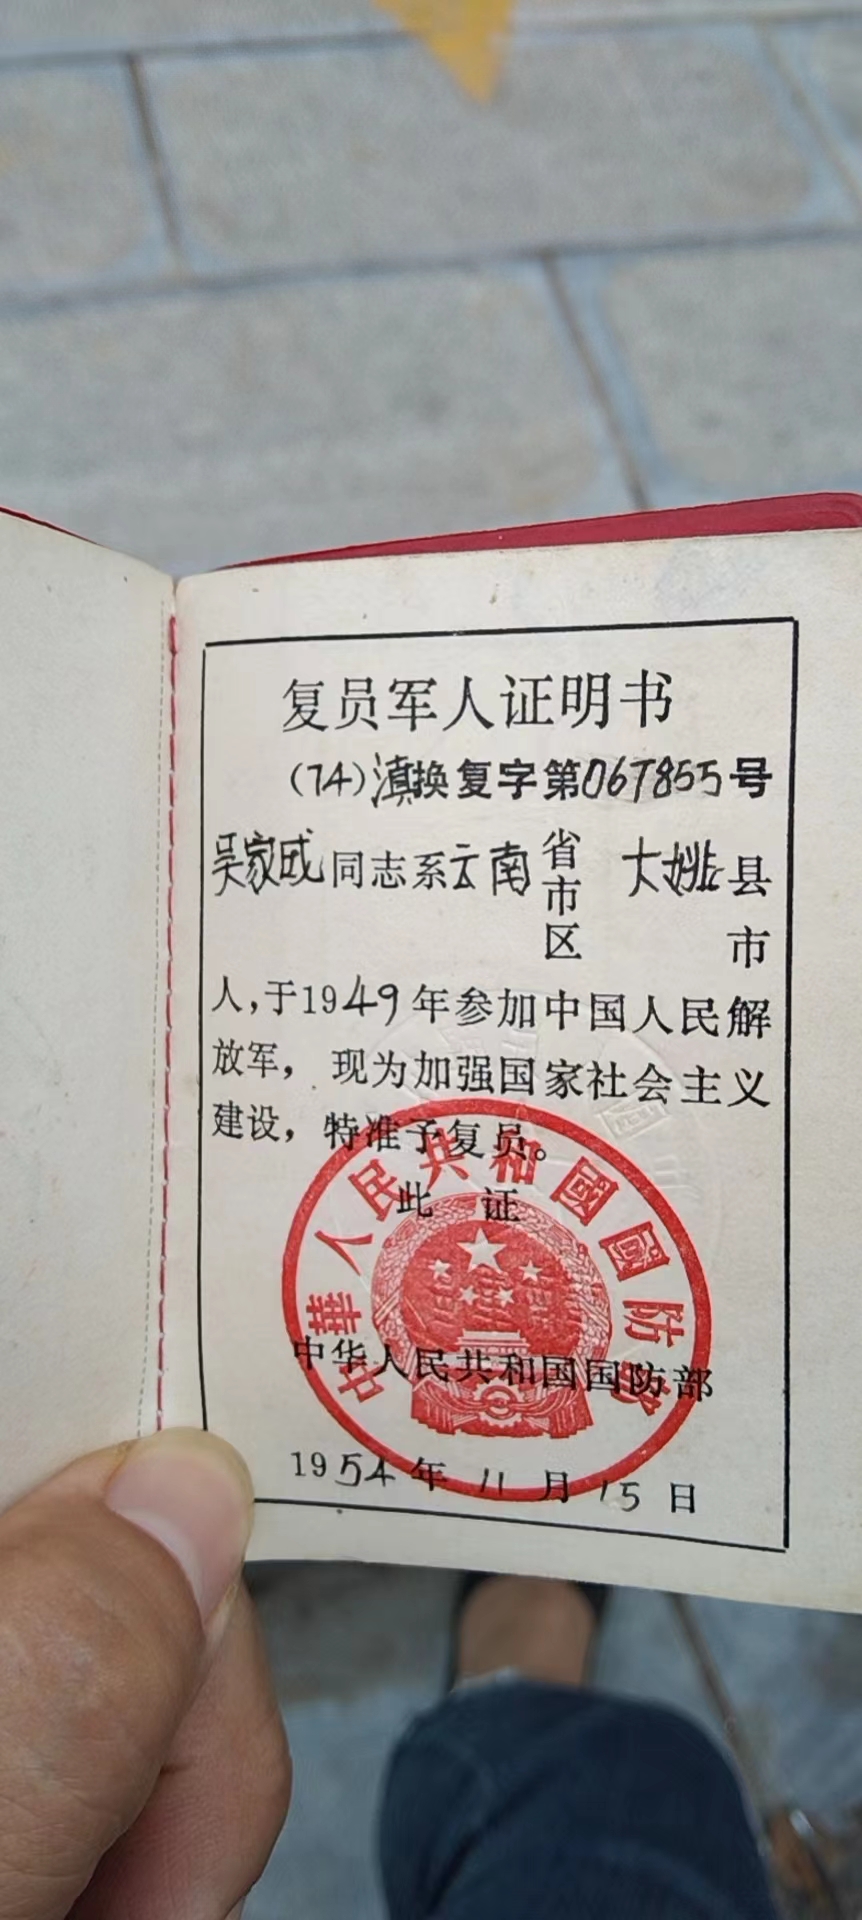 复员军人证明书
(74)滇换复字第067855号
吴家成同志系云南省市区 大姚县市
人,于1949年参加中国人民解
放军,现为加强国家社会主义
建设,特准予复员。
此 证
中華人民共和國國防部
中华人民共和国国防部
1954年11月15日